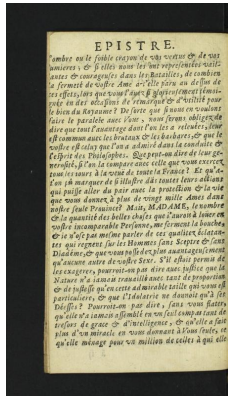 EPISTRE.
l'ombre ou le foible crayon de vos vertus & de vos
lumieres ; & si elles nous les ont representées vail-
antes & courageuses dans les Batailles, de combien
la fermeté de vostre Ame a-t'elle paru au dessus de
ces effets, lors que vous l'avez si glorieusement témoi-
gnée en des occasions de remarque & d'utilité pour
le bien du Royaume ? De sorte que si nous en voulons
faire le parallele avec l'une, nous serons obligez de
dire que tout l'avantage dont l'on les a relevées, leur
est commun avec les brutaux & les barbares, & que le
vostre est celuy que l'on a admiré dans la conduite &
l'esprit des Philosophes. Que peut-on dire de leur ge-
nerosité, si l'on la compare avec celle que vous exercez
tous les jours à la veuë de toute la France ? Et qu'a-
t'on pû marquer de si illustre dãs toutes leurs actions
qui puisse aller du pair avec la protection & la vie
que vous donnez à plus de vingt mille Ames dans
nostre seule Province ? Mais, MADAME, le nombre
& la quantité des belles choses que l'auroy à loüer en
vostre incomparable Personne, me ferment la bouche,
& je n'ose pas mesme parler de ces qualitez éclatan-
tes qui regnent sur les Hommes sans Sceptre & sans
Diadéme, & que vous possedez plus avantageusement
qu'aucune autre de vostre Sexe. S'il estoit permis de
les exagerer, pourroit-on pas dire avec justice que la
Nature n'a jamais travaillé avec tant de proportion
& de justesse qu'en cette admirable taille qui vous est
particuliere, & que l'Idolatrie ne donnoit qu'à ses
Déesses ? Pourroit-on pas dire, sans vous flatter,
qu'elle n'a jamais assemblé en un seul corps tant de
tresors de grace & d'intelligence, & qu'elle a fait
plus d'un miracle en vous donnant à Vous seule, ce
qu'elle ménage pour un million de celles à qui elle